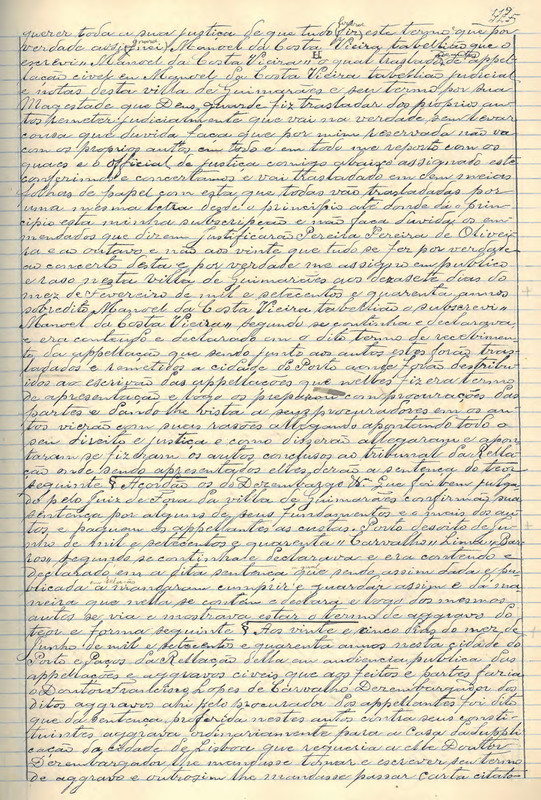 425
querer toda a sua justiça de que tudo fiz este termo que por
verdade assignei Manoel da Costa Vieira tabellião que o
escrevi Manoel da Costa Vieira o qual traslado de appel-
lação civel eu Manoel da Costa Vieira tabellião judicial
e notas desta villa de Guimarães e seu termo por sua
Magestade que Deus guarde fiz trasladar dos proprios au-
tos remeter judicialmente que vai na verdade sem levar
cousa que duvida faça que por mim reservada não va
com os proprios autos em todo e em todo me reporto com os
quaes e o official de justiça comigo abaixo assignado este
conferimos e concertamos e vai trasladado em cem meias
folhas de papel com esta que todas vão trasladadas por
uma mesma letra desde o principio até donde dá princi-
cipio esta minha subscripção e não faça duvida os em-
mendados que dizem justificará Pereira Pereira de Olivei-
ra e a oitavo e não aos vinte que tudo se fez por verdade
ao concerto desta e por verdade me assigno em publico
e raso nesta villa de Guimarães aos dezasete dias do
mez de Fevereiro de mil e setecentos e quarenta annos
sobredito Manoel da Costa Vieira tabellião o subscrevi
Manoel da Costa Vieira segundo se continha e declarava
e era contendo e declarado em o dito termo de recebimen-
to da appellação que sendo junto aos autos estes forão tras-
ladados e remetidos a cidade do Porto aonde forão destribu-
idos ao escrivão das appellações que nelles fizera termo
de apresentação e logo os preparou com procurações das
partes e dando lhe vista a seus procuradores em os au-
tos vierão com suas rasões allegando apontando todo o
seu direito e justiça e como disserão allegaram e apon-
taram se fizeram os autos conclusos ao tribunal da Rella-
ção onde sendo apresentados elles derão a sentença do teor
seguinte § Acordão os do Dezembargo &. Que foi bem julga-
do pelo Juiz de Fora da villa de Guimarães confirmão sua
sentença por alguns de seus fundamentos e o mais dos au-
tos e paguem os appellantes as custas. Porto desoito de Ju-
nho de mil e setecentos e quarenta Carvalho Lima Bar-
ros segundo se continha e declarava e era contendo e
declarado em a dita sentença que sendo assim dada e pu-
blicada a mandaram cumprir e guardar assim e da ma-
neira que nella se contém e declara e logo dos mesmos
autos se via e mostrava estar o termo de aggravo do
teor e forma seguinte § Aos vinte e cinco dias do mez de
Junho de mil e setecentos e quarenta annos nesta cidade do
Porto e Paços da Rellação della em audiencia publica das
appellações e aggravos civeis que aos feitos e partes fazia
o Doutor Francisco Lopes de Carvalho Dezembargador dos
ditos aggravos ahi pelo procurador dos appellantes foi dito
que da sentença proferida nestes autos contra seus consti-
tuintes aggrava ordinariamente para a Casa da Suppli-
cação da cidade de Lisboa que requeria a elle Doutor
Dezembargador lhe mandasse tomar e escrever seu termo
de aggravo e outrosim lhe mandasse passar carta citato-